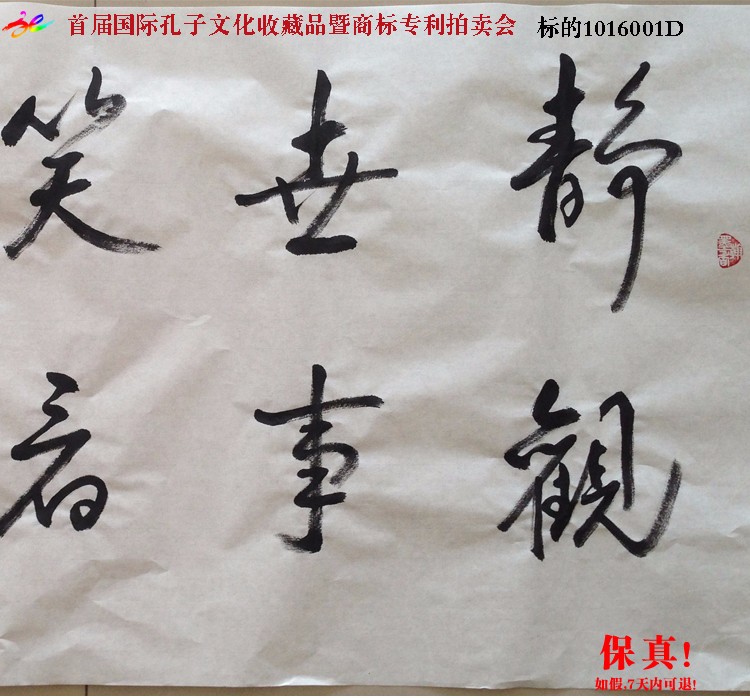 首届国际孔子文化收藏品暨商标专利拍卖会 标的1016001D
静觀
世事
笑看
保真!
如假,7天内可退!